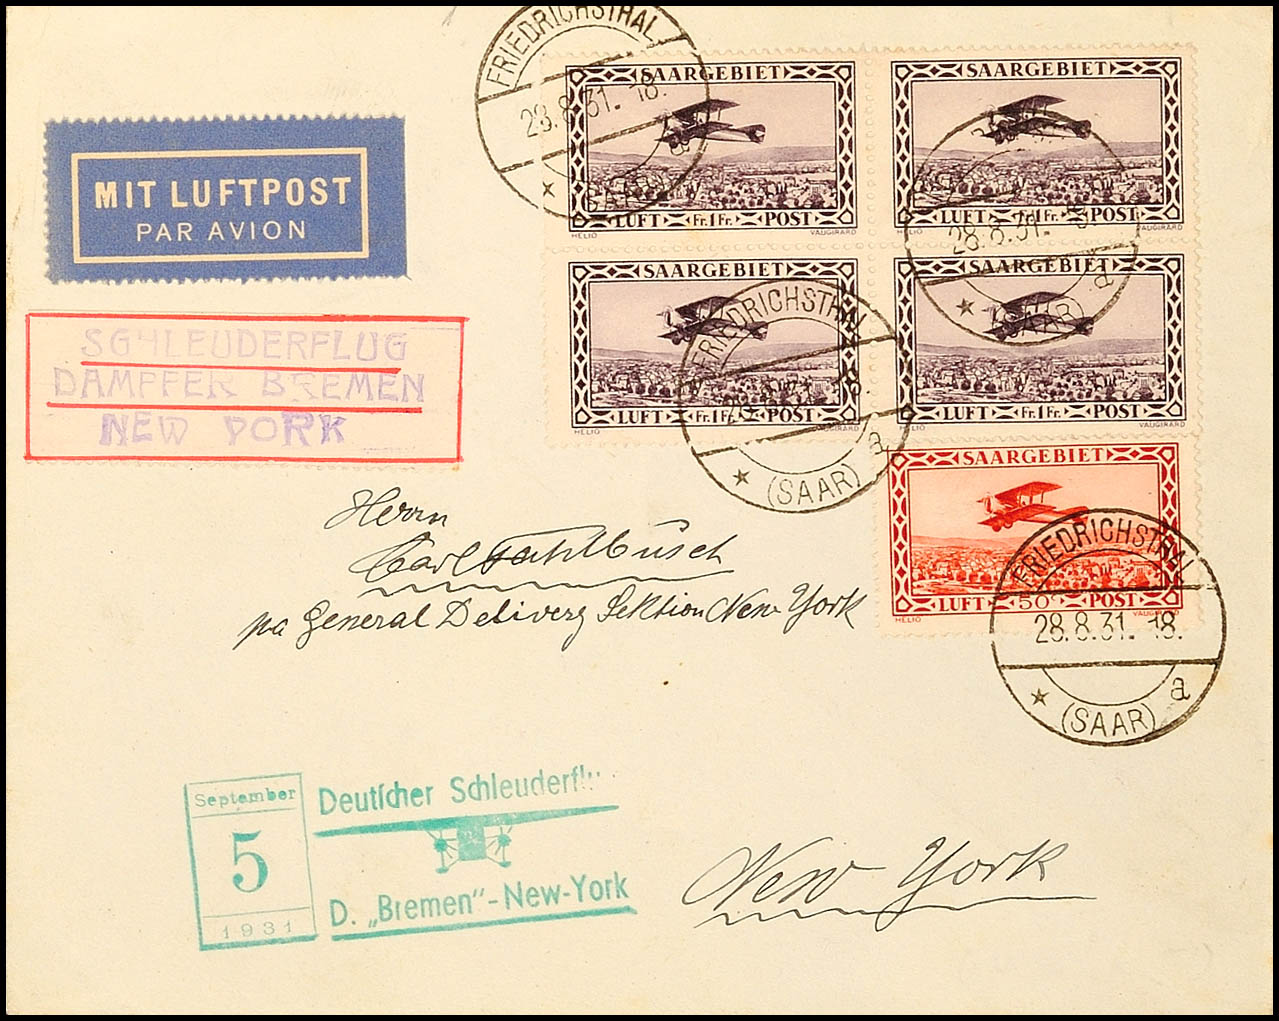 FRIEDRICHSTHAL
28.8.31-18.
SAARGEBIET
LUFT Fr.1Fr. POST
HELIO VAUGIRARD
SAARGEBIET
LUFT Fr.1Fr. POST
HELIO VAUGIRARD
MIT LUFTPOST
PAR AVION
28.8.31-
(SAAR) a
SAARGEBIET
LUFT Fr.1Fr. POST
HELIO
SAARGEBIET
LUFT Fr.1Fr. POST
VAUGIRARD
FRIEDRICHSTHAL
(SAAR) a
SCHLEUDERFLUG
DAMPFER BREMEN
NEW YORK
SAARGEBIET
LUFT 50c POST
HELIO VAUGIRARD
FRIEDRICHSTHAL
28.8.31-18.
(SAAR) a
Herrn
Carl Fahlbusch
pa General Delivery Sektion New York
September
5
1931
Deutscher Schleuderfl
D. „Bremen"-New-York
New York